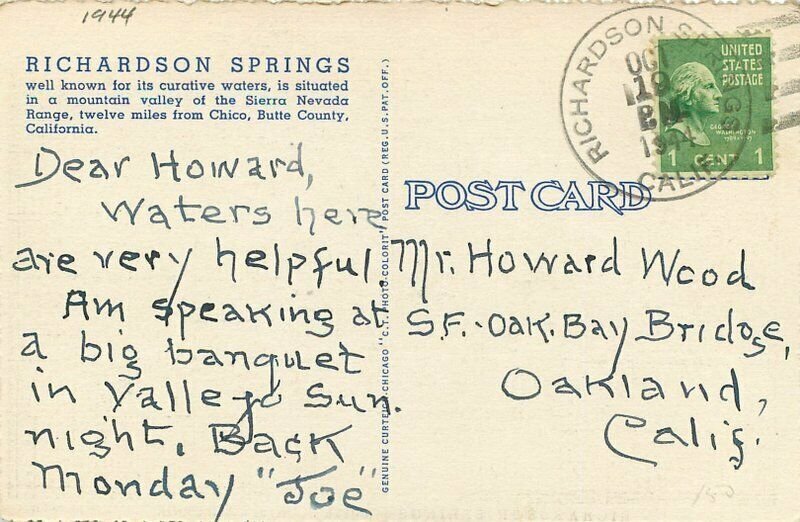 1944
RICHARDSON SPRINGS
well known for its curative waters, is situated
in a mountain valley of the Sierra Nevada
Range, twelve miles from Chico, Butte County,
California.
Dear Howard,
Waters here
are very helpful.
Am speaking at
a big banquet
in Vallejo Sun.
night. Back
Monday "Joe"
GENUINE CURTEICH-CHICAGO "C.T. PHOTO-COLORIT" POST CARD (REG. U.S. PAT. OFF.)
POST CARD
RICHARDSON SPRINGS
CALIF.
OCT
19
PM
1944
UNITED
STATES
POSTAGE
GEORGE
WASHINGTON
1 CENT 1
Mr. Howard Wood
S.F.-Oak. Bay Bridge,
Oakland,
Calif.